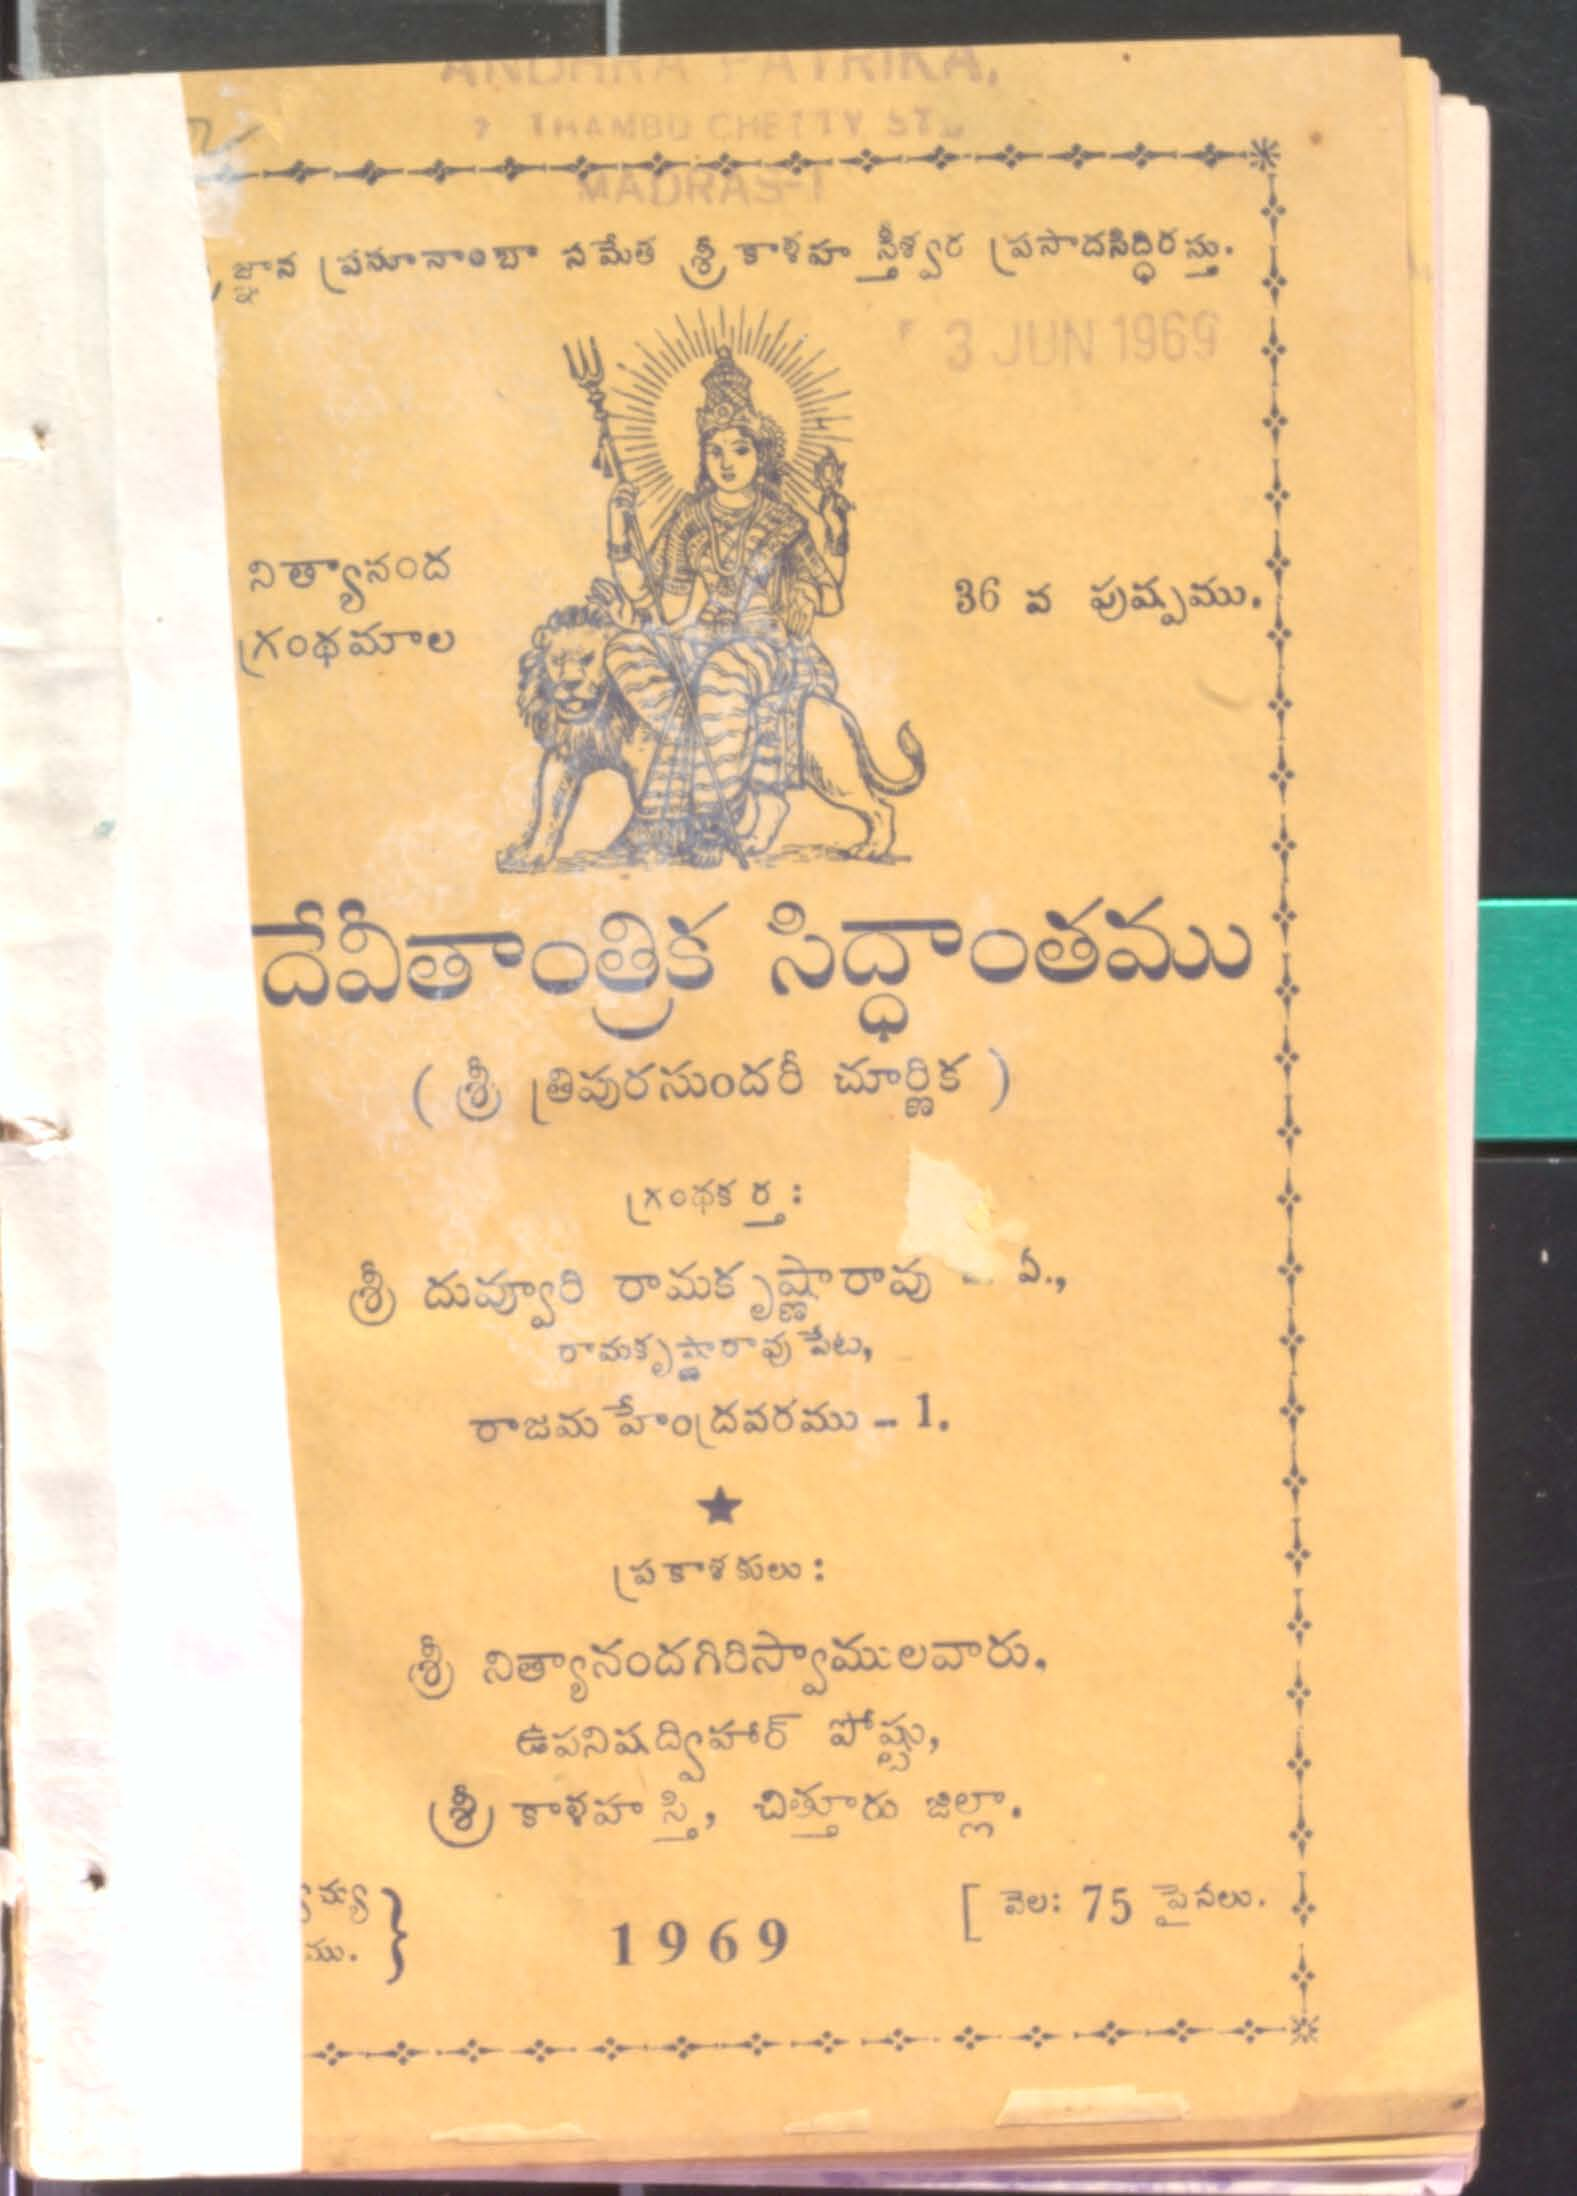 ANDHRA PATRIKA,
THAMBU CHETTY ST.
MADRAS-1
జ్ఞాన ప్రసూనాంబా సమేత శ్రీ కాళహస్తీశ్వర ప్రసాదసిద్ధిరస్తు.
3 JUN 1969
నిత్యానంద
గ్రంథమాల
36 వ పుష్పము.
దేవీతాంత్రిక సిద్ధాంతము
( శ్రీ త్రిపురసుందరీ చూర్ణిక )
గ్రంథకర్త :
శ్రీ దువ్వూరి రామకృష్ణారావు ఏ.,
రామకృష్ణారావు పేట,
రాజమహేంద్రవరము - 1.
★
ప్రకాశకులు :
శ్రీ నిత్యానందగిరిస్వాములవారు.
ఉపనిషద్విహార్ పోష్టు,
శ్రీ కాళహస్తి, చిత్తూరు జిల్లా.
ము. }
1969
[ వెల: 75 పైసలు.